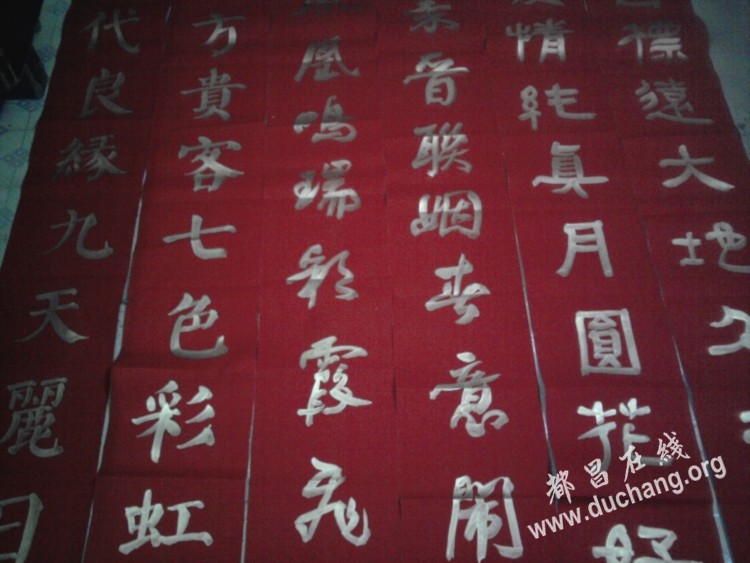 標遠大地久
情純真月圓花好
秦晉聯姻春意鬧
凰鳴瑞彩霞飛
方貴客七色彩虹
代良緣九天麗日
都昌在线
www.duchang.org